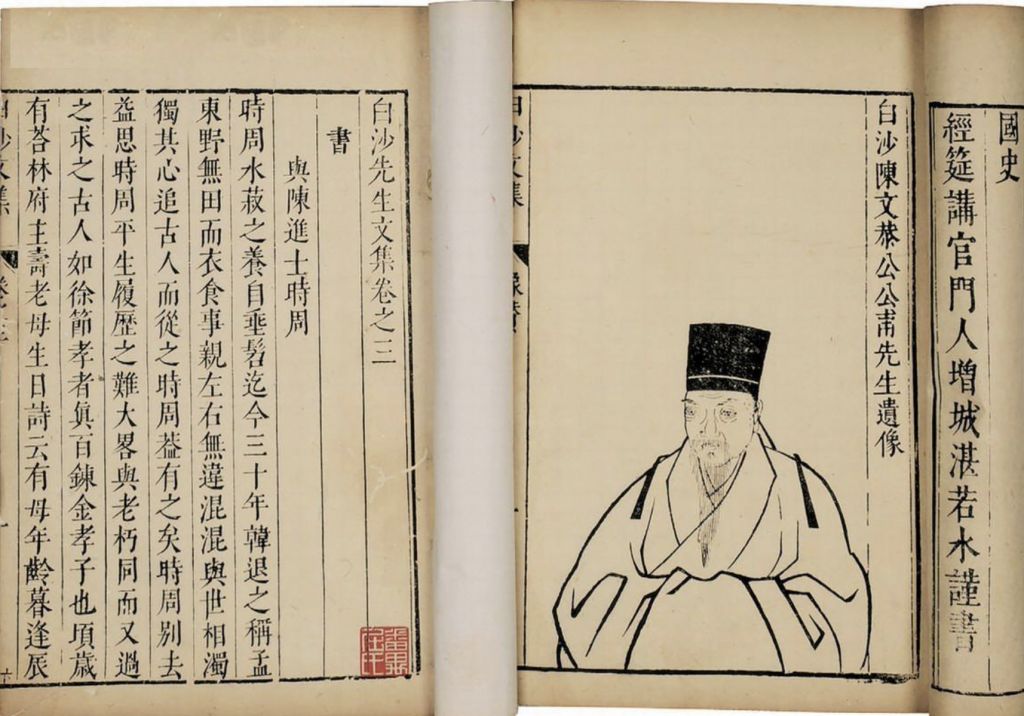 國史
經筵講官門人增城湛若水謹書
白沙陳文恭公公甫先生遺像
白沙文集
像贊
白沙先生文集卷之三
書
與陳進士時周
時周水菽之養自垂髫迄今三十年韓退之稱孟
東野無田而衣食事親左右無違混混與世相濁
獨其心追古人而從之時周葢有之矣時周别去
益思時周平生履歷之難大畧與老朽同而又過
之求之古人如徐節孝者眞百鍊金孝子也頃歲
有荅林府主壽老母生日詩云有母年齡暮逢辰
白沙文集